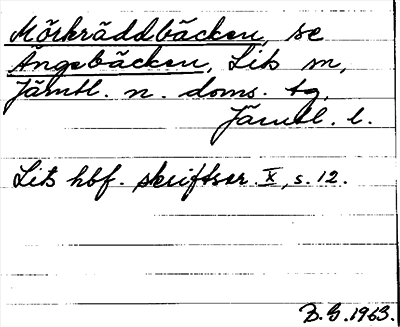 Mörkräddbäcken, se
Ängsbäcken, Lits sn,
Jämtl. n. doms. tg,
Jämtl. l.
Lits hbf. skriftser. X, s. 12.
B. G. 1963.